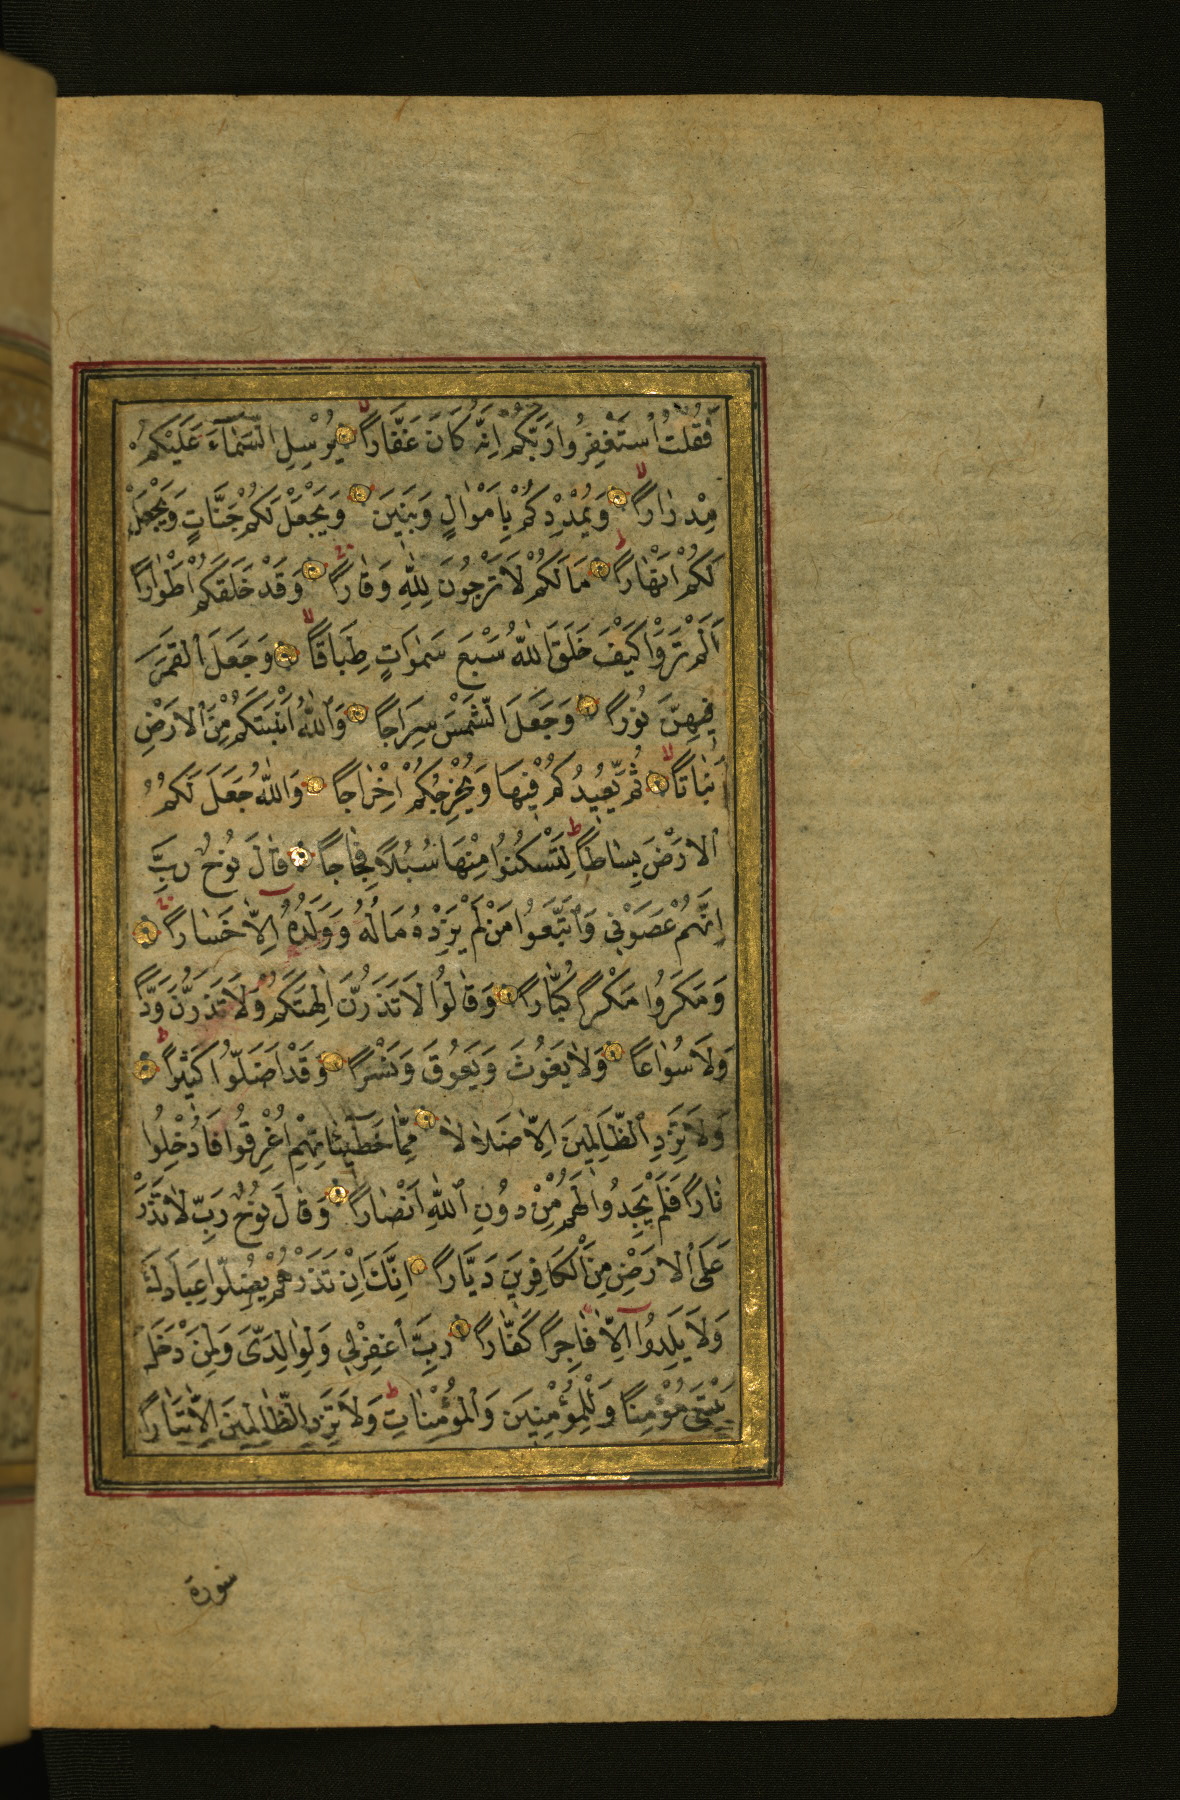 فَقُلْتُ اسْتَغْفِرُوا رَبَّكُمْ اِنَّهُ كَانَ غَفَّاراً يُرْسِلِ السَّمَٓاءَ عَلَيْكُمْ
مِدْرَاراً وَيُمْدِدْكُمْ بِاَمْوَالٍ وَبَنِينَ وَيَجْعَلْ لَكُمْ جَنَّاتٍ وَيَجْعَلْ
لَكُمْ اَنْهَاراً مَا لَكُمْ لَا تَرْجُونَ لِلّٰهِ وَقَاراً وَقَدْ خَلَقَكُمْ اَطْوَاراً
اَلَمْ تَرَوْا كَيْفَ خَلَقَ اللّٰهُ سَبْعَ سَمٰوَاتٍ طِبَاقاً وَجَعَلَ الْقَمَرَ
فِيهِنَّ نُوراً وَجَعَلَ الشَّمْسَ سِرَاجاً وَاللّٰهُ اَنْبَتَكُمْ مِنَ الْاَرْضِ
نَبَاتاً ثُمَّ يُعِيدُكُمْ فِيهَا وَيُخْرِجُكُمْ اِخْرَاجاً وَاللّٰهُ جَعَلَ لَكُمُ
الْاَرْضَ بِسَاطاً لِتَسْكُنُوا مِنْهَا سُبُلاً فِجَاجاً قَالَ نُوحٌ رَبِّ
اِنَّهُمْ عَصَوْنِي وَاتَّبَعُوا مَنْ لَمْ يَزِدْهُ مَالُهُ وَوَلَدُهُ اِلَّا خَسَاراً
وَمَكَرُوا مَكْراً كُبَّاراً وَقَالُوا لَا تَذَرُنَّ اٰلِهَتَكُمْ وَلَا تَذَرُنَّ وَدّاً
وَلَا سُوَاعاً وَلَا يَغُوثَ وَيَعُوقَ وَنَسْراً وَقَدْ اَضَلُّوا كَثِيراً
وَلَا تَزِدِ الظَّالِمِينَ اِلَّا ضَلَالاً مِمَّا خَطِٓيئَاتِهِمْ اُغْرِقُوا فَاُدْخِلُوا
نَاراً فَلَمْ يَجِدُوا لَهُمْ مِنْ دُونِ اللّٰهِ اَنْصَاراً وَقَالَ نُوحٌ رَبِّ لَا تَذَرْ
عَلَى الْاَرْضِ مِنَ الْكَافِرِينَ دَيَّاراً اِنَّكَ اِنْ تَذَرْهُمْ يُضِلُّوا عِبَادَكَ
وَلَا يَلِدُٓوا اِلَّا فَاجِراً كَفَّاراً رَبِّ اغْفِرْلِي وَلِوَالِدَيَّ وَلِمَنْ دَخَلَ
بَيْتِيَ مُؤْمِناً وَلِلْمُؤْمِنِينَ وَالْمُؤْمِنَاتِ وَلَا تَزِدِ الظَّالِمِينَ اِلَّا تَبَاراً
سورة